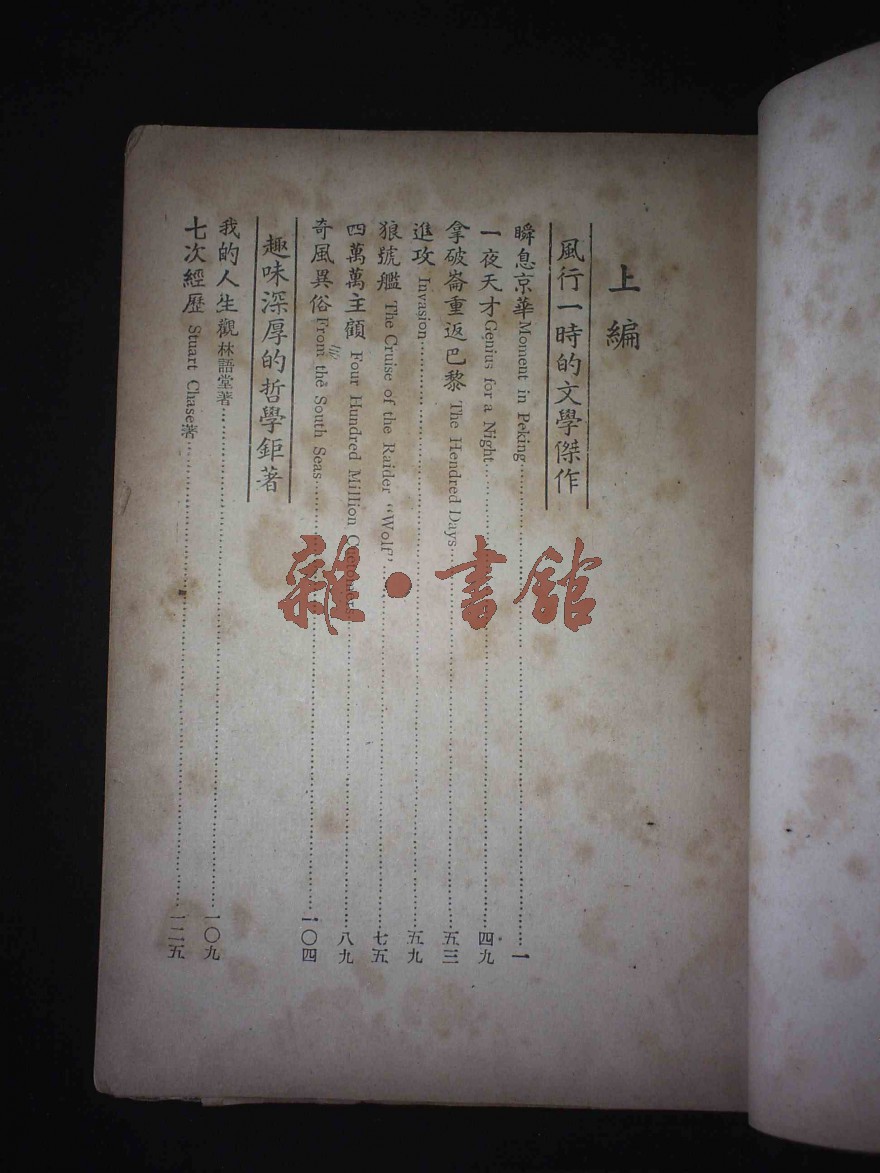 上編
風行一時的文學傑作
瞬息京華 Moment in Peking 一
一夜天才 Genius for a Night 四九
拿破崙重返巴黎 The Hendred Days 五三
進攻 Invasion 五九
狼號艦 The Cruise of the Raider “Wolf” 七五
四萬萬主顧 Four Hundred Million 八九
奇風異俗 From the South Seas 一〇四
趣味深厚的哲學鉅著
我的人生觀 林語堂著 一〇九
七次經歷 Stuart Chase著 一二五
雜·書館